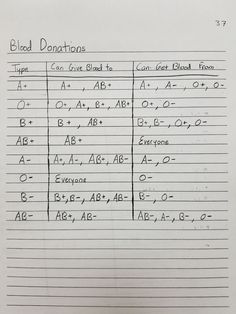 37
Blood Donations
Type Can Give Blood to Can Get Blood From
A+ A+ , AB+ A+, A-, O+, O-
O+ O+, A+, B+, AB+ O+, O-
B+ B+ , AB+ B+, B-, O+, O-
AB+ AB+ Everyone
A- A+, A-, AB+, AB- A-, O-
O- Everyone O-
B- B+, B-, AB+, AB- B-, O-
AB- AB+, AB- AB-, A-, B-, O-